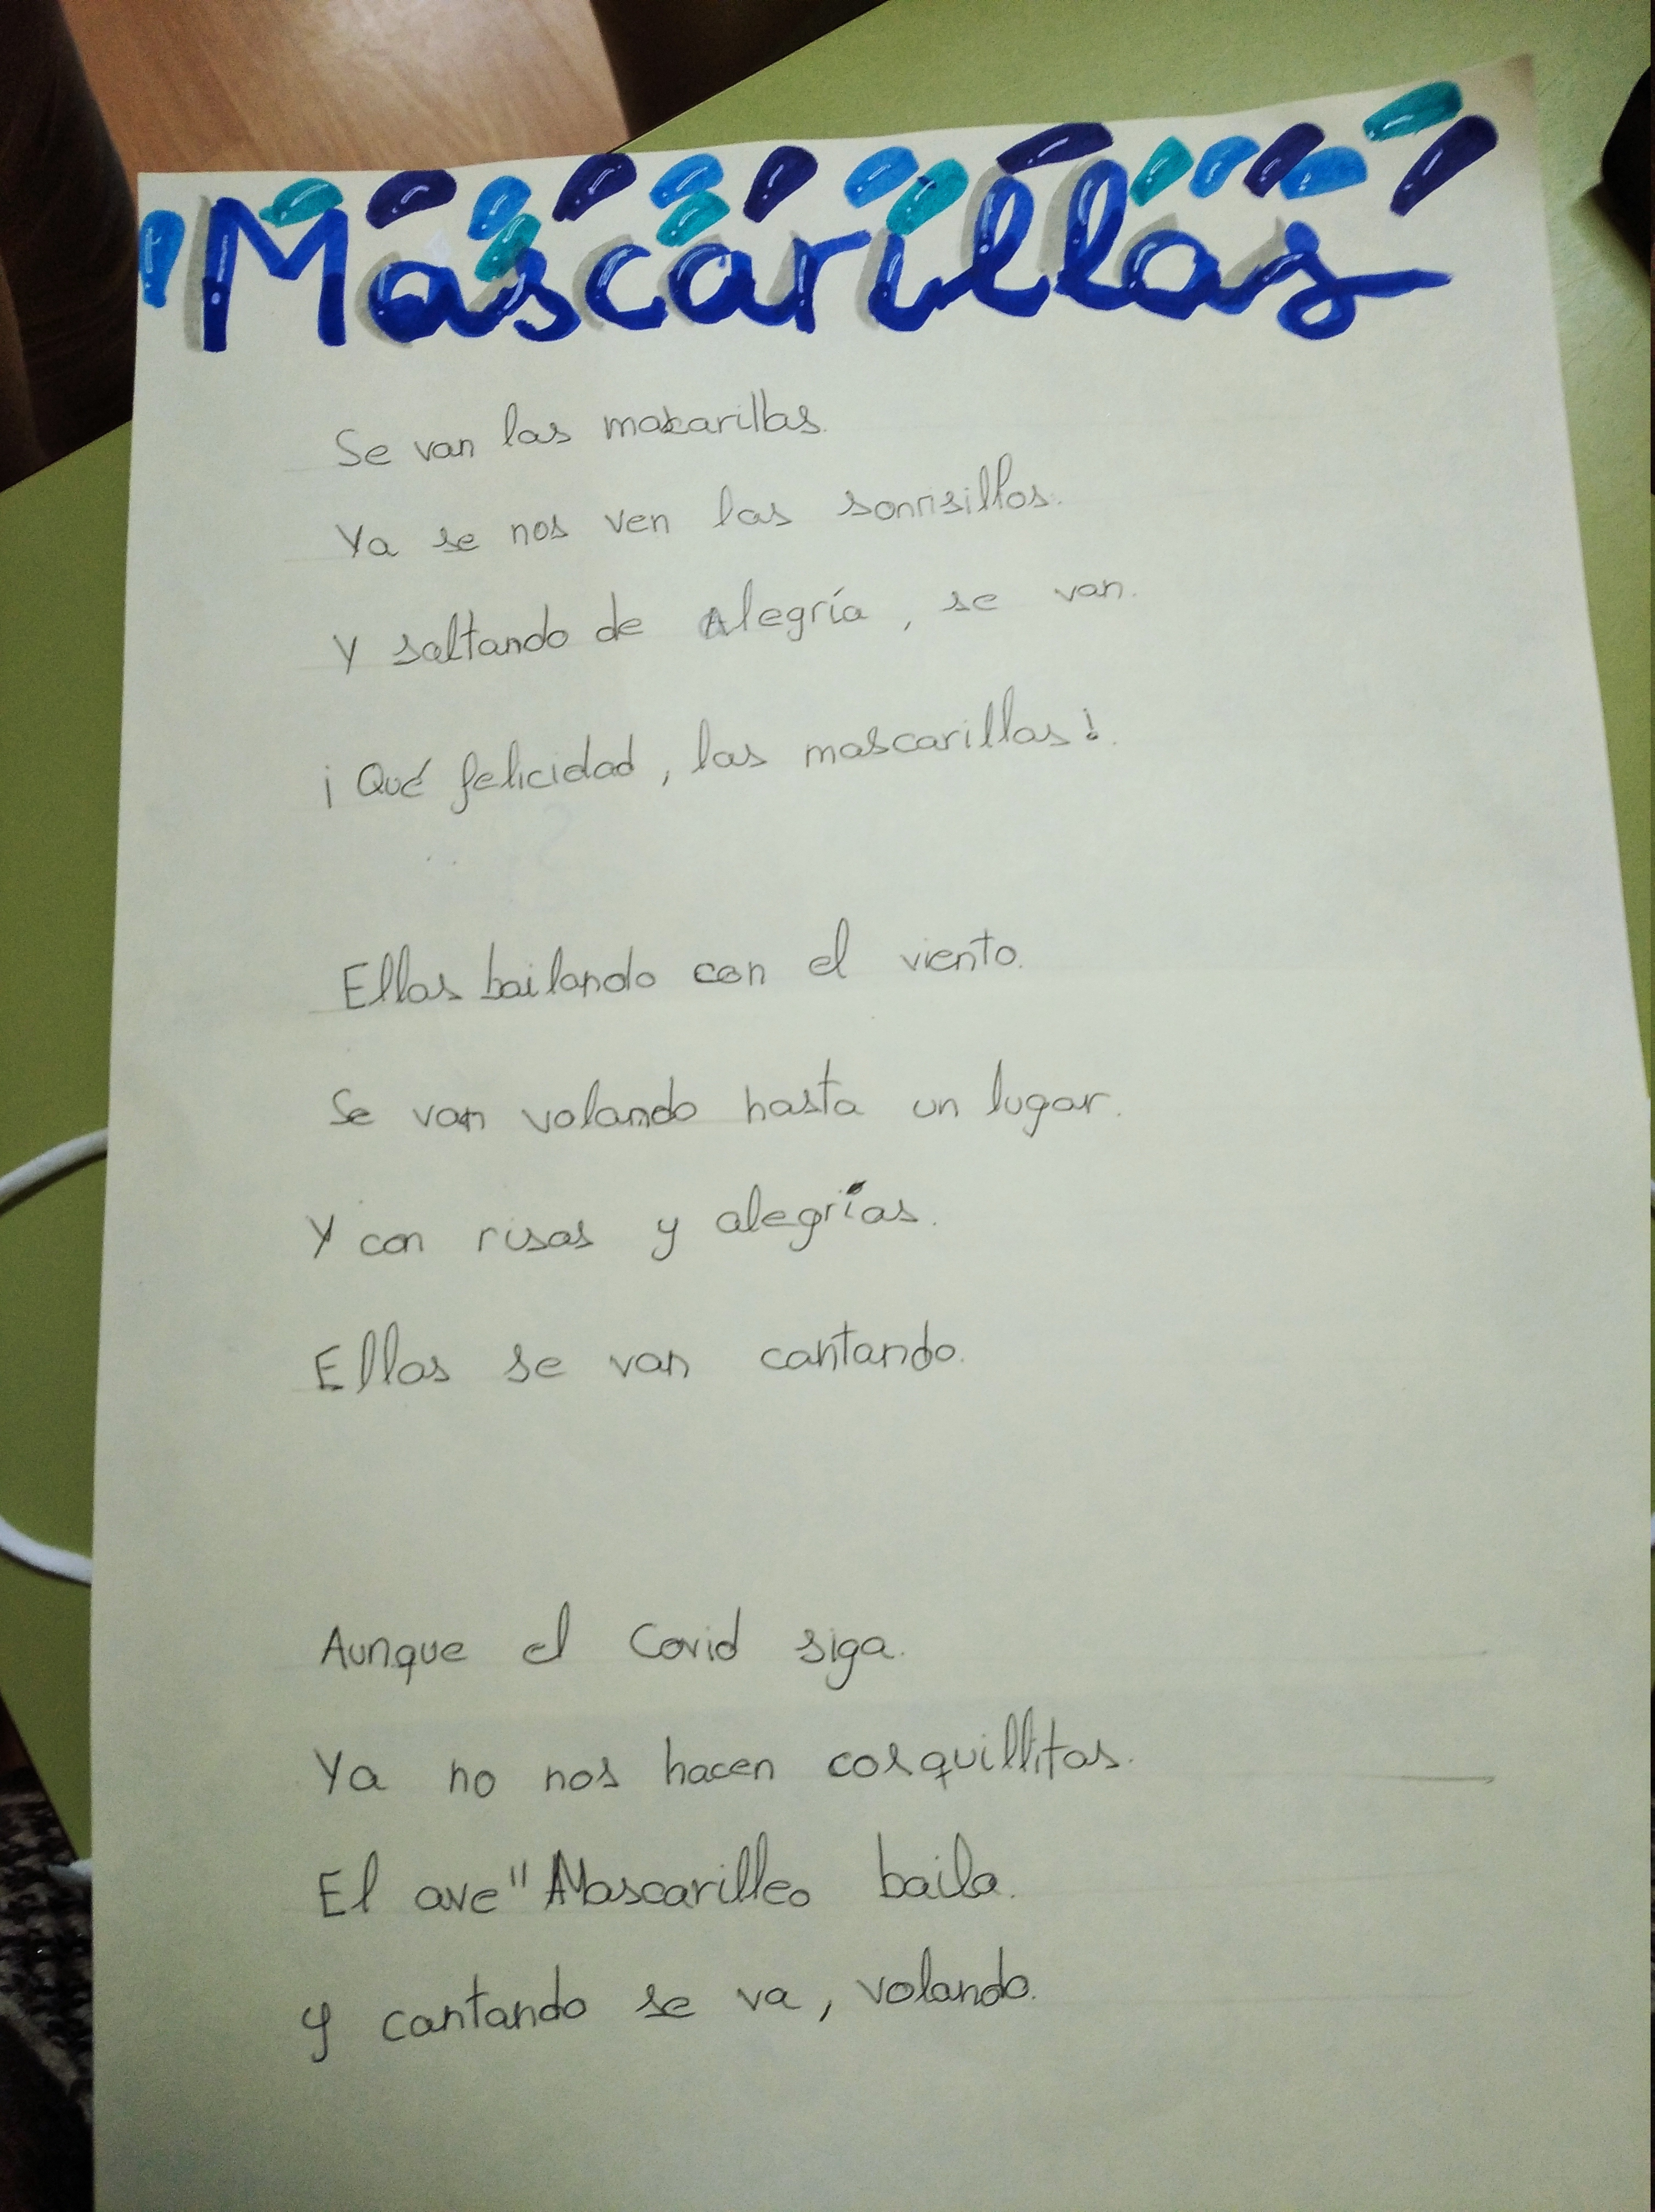 Mascarillas
Se van las mascarillas.
Ya se nos ven las sonrisillas.
Y saltando de Alegría, se van.
¡Qué felicidad, las mascarillas!.
Ellas bailando con el viento.
Se van volando hasta un lugar.
Y con risas y alegrías.
Ellas se van cantando.
Aunque el Covid siga.
Ya no nos hacen cosquillitas.
El ave "Mascarilleo baila.
y cantando se va, volando.